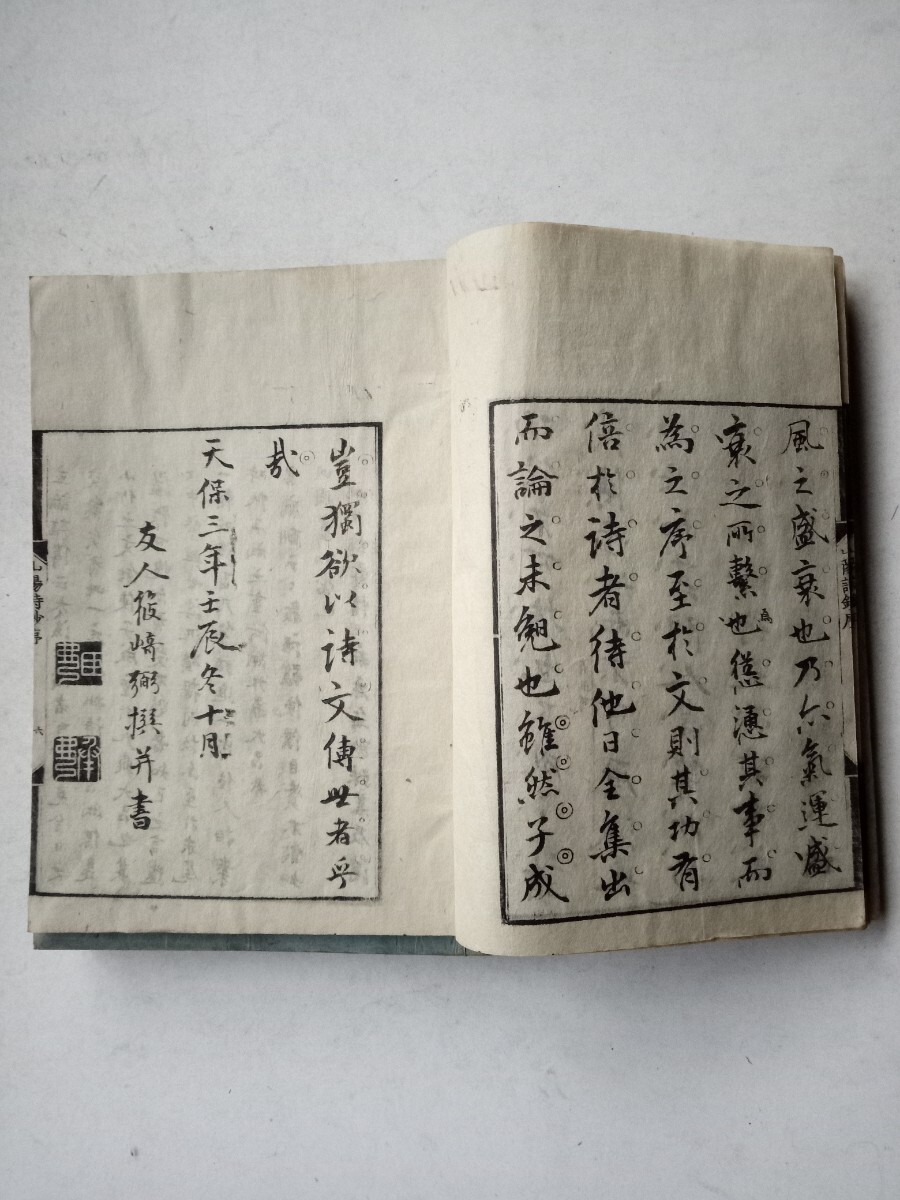 風之盛衰也乃尒氣運盛
衰之所繫也為慫慂其事而
為之序至於文則其功有
倍於詩者待他日全集出
而論之未兔也雖然子成
豈獨欲以詩文傳世者乎
哉
天保三年壬辰冬十月
友人篠﨑弼撰并書
山陽詩鈔序
六